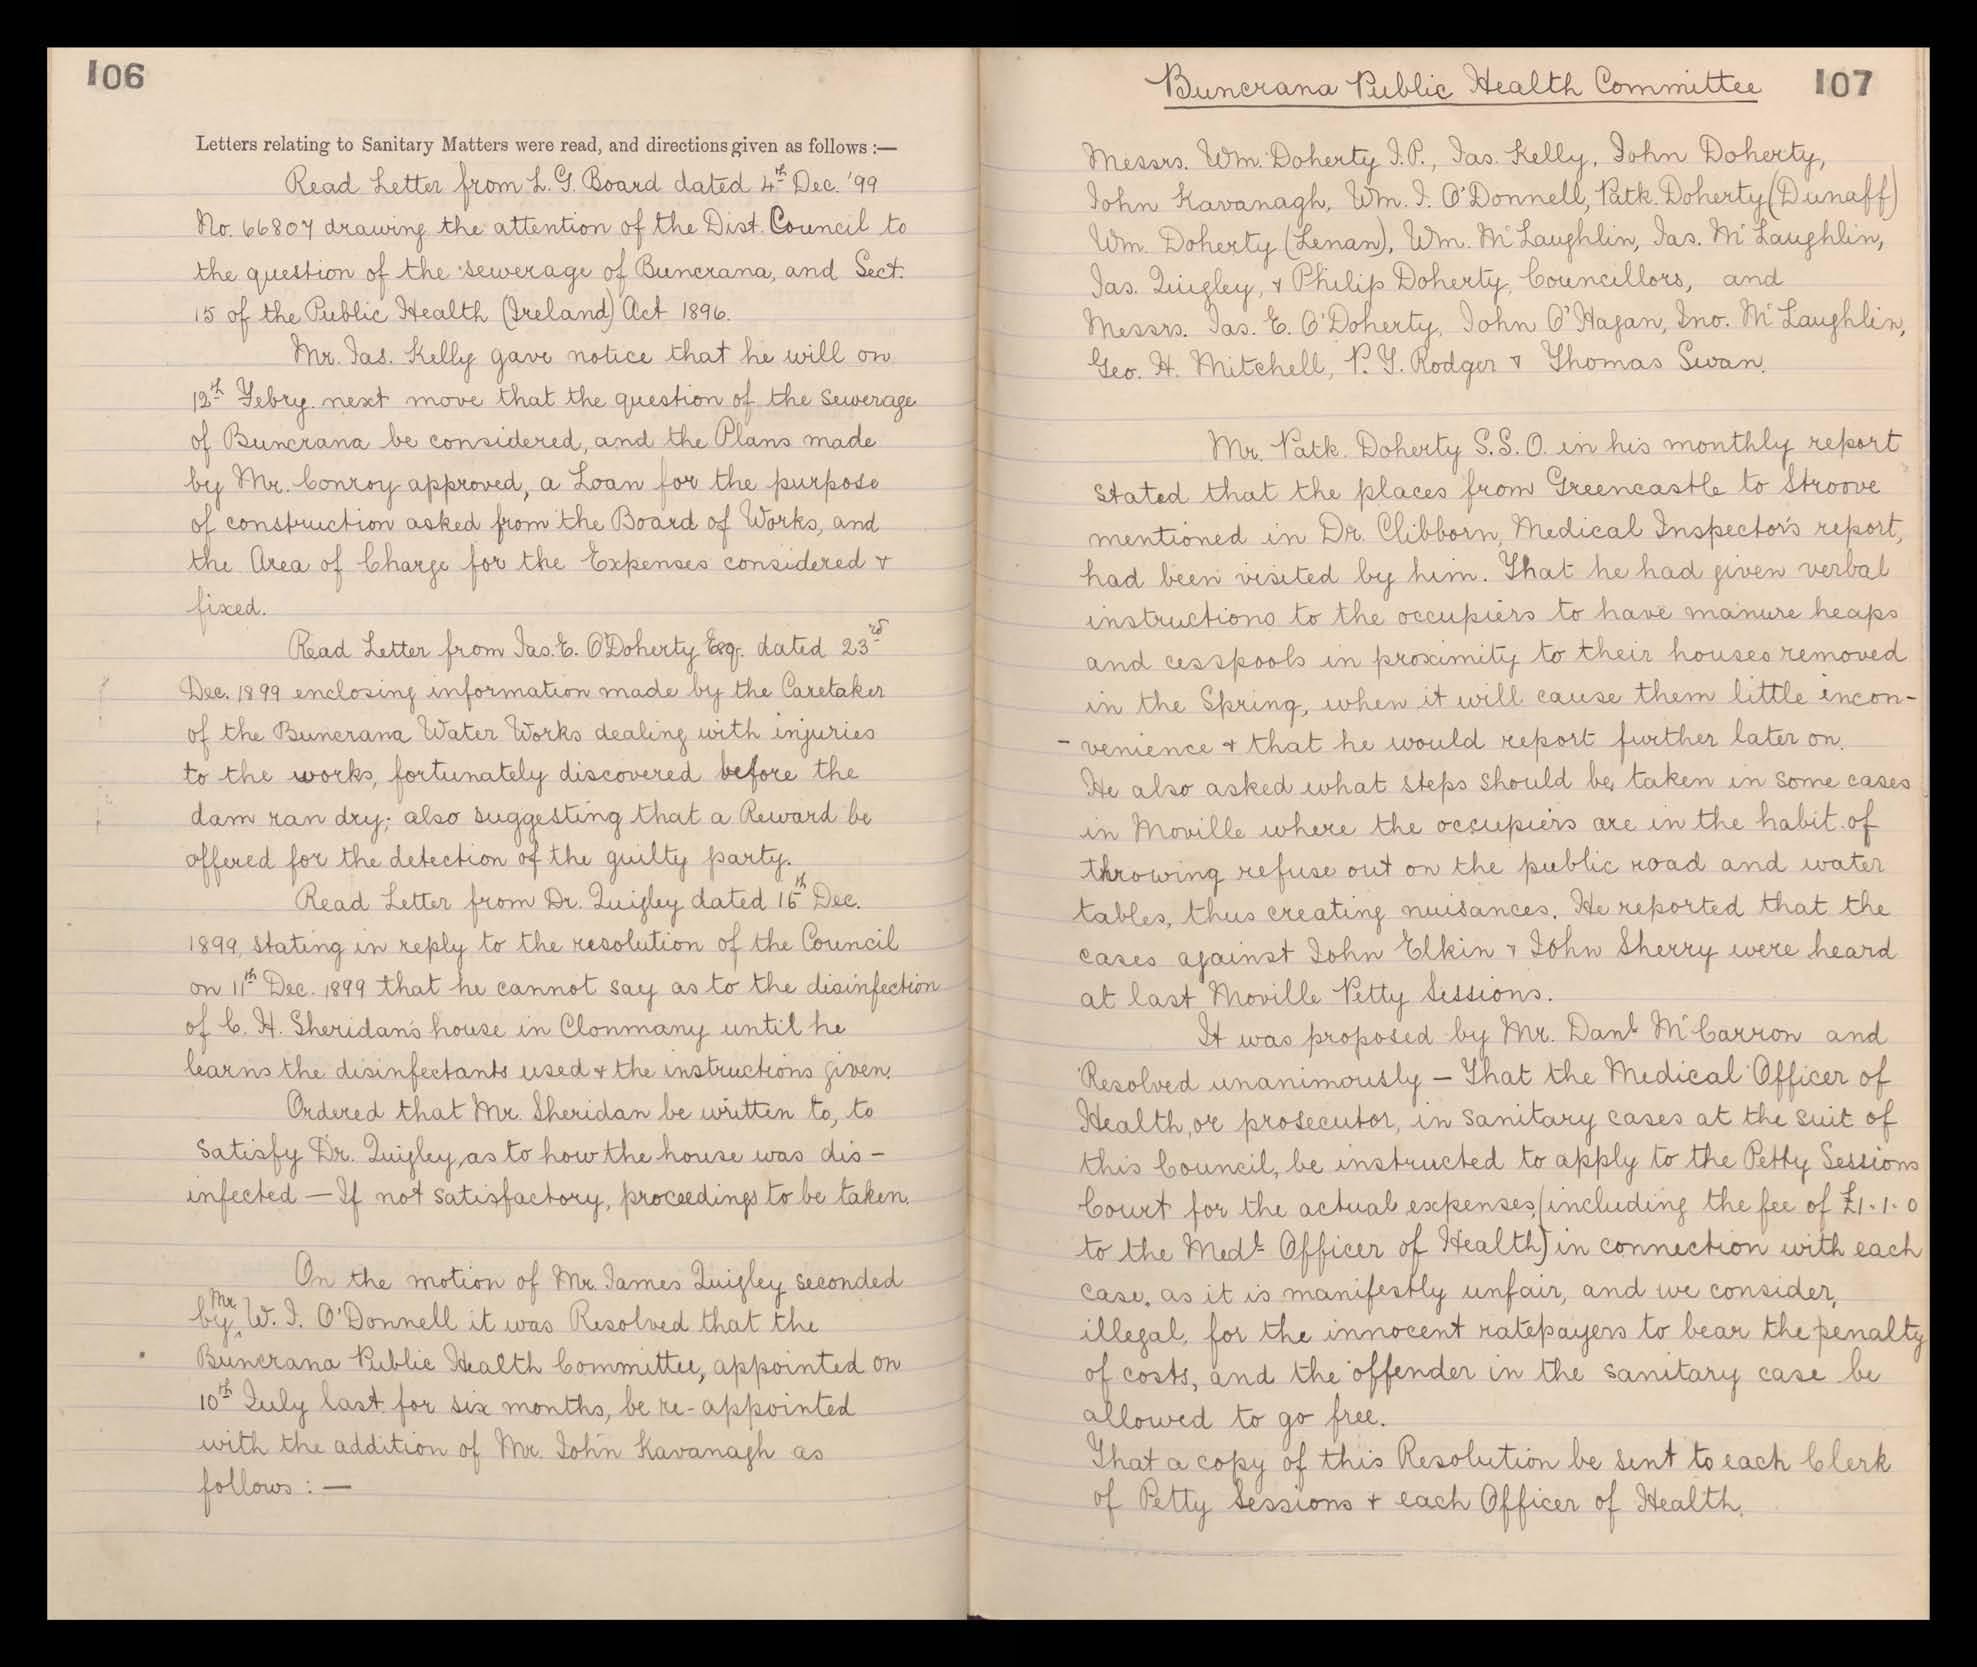 106
Letters relating to Sanitary Matters were read, and directions given as follows :—
Read Letter from L. G. Board dated 4th Dec. '99
No. 66807 drawing the attention of the Dist. Council to
the question of the sewerage of Buncrana, and Sect.
15 of the Public Health (Ireland) Act 1896.
Mr. Jas. Kelly gave notice that he will on
12th Febry. next move that the question of the sewerage
of Buncrana be considered, and the Plans made
by Mr. Conroy approved, a Loan for the purpose
of construction asked from the Board of Works, and
the Area of Charge for the Expenses considered &
fixed.
Read Letter from Jas. E. O'Doherty Esq. dated 23rd
Dec. 1899 enclosing information made by the Caretaker
of the Buncrana Water Works dealing with injuries
to the works, fortunately discovered before the
dam ran dry; also suggesting that a Reward be
offered for the detection of the guilty party.
Read Letter from Dr. Quigley dated 16th Dec.
1899, stating in reply to the resolution of the Council
on 11th Dec. 1899 that he cannot say as to the disinfection
of C. H. Sheridan's house in Clonmany until he
learns the disinfectants used & the instructions given.
Ordered that Mr. Sheridan be written to, to
satisfy Dr. Quigley, as to how the house was dis-
infected — If not satisfactory, proceedings to be taken.
On the motion of Mr. James Quigley seconded
by Mr. W. J. O'Donnell it was Resolved that the
Buncrana Public Health Committee, appointed on
10th July last for six months, be re-appointed
with the addition of Mr. John Kavanagh as
follows : —
Buncrana Public Health Committee
107
Messrs. Wm. Doherty J.P., Jas. Kelly, John Doherty,
John Kavanagh, Wm. J. O'Donnell, Patk. Doherty (Dunaff)
Wm. Doherty (Lenan), Wm. McLaughlin, Jas. McLaughlin,
Jas. Quigley, & Philip Doherty, Councillors, and
Messrs. Jas. E. O'Doherty, John O'Hagan, Jno. McLaughlin,
Geo. H. Mitchell, P. T. Rodger & Thomas Swan.
Mr. Patk. Doherty S.S.O. in his monthly report
stated that the places from Greencastle to Stroove
mentioned in Dr. Clibborn, Medical Inspector's report,
had been visited by him. That he had given verbal
instructions to the occupiers to have manure heaps
and cesspools in proximity to their houses removed
in the Spring, when it will cause them little incon-
-venience & that he would report further later on.
He also asked what steps should be taken in some cases
in Moville where the occupiers are in the habit of
throwing refuse out on the public road and water
tables, thus creating nuisances. He reported that the
cases against John Elkin & John Sherry were heard
at last Moville Petty Sessions.
It was proposed by Mr. Danl McCarron and
Resolved unanimously — That the Medical Officer of
Health, or prosecutor, in sanitary cases at the suit of
this Council, be instructed to apply to the Petty Sessions
Court for the actual expenses, (including the fee of £1.1.0
to the Medl Officer of Health) in connection with each
case, as it is manifestly unfair, and we consider,
illegal, for the innocent ratepayers to bear the penalty
of costs, and the offender in the sanitary case be
allowed to go free.
That a copy of this Resolution be sent to each Clerk
of Petty Sessions & each Officer of Health.